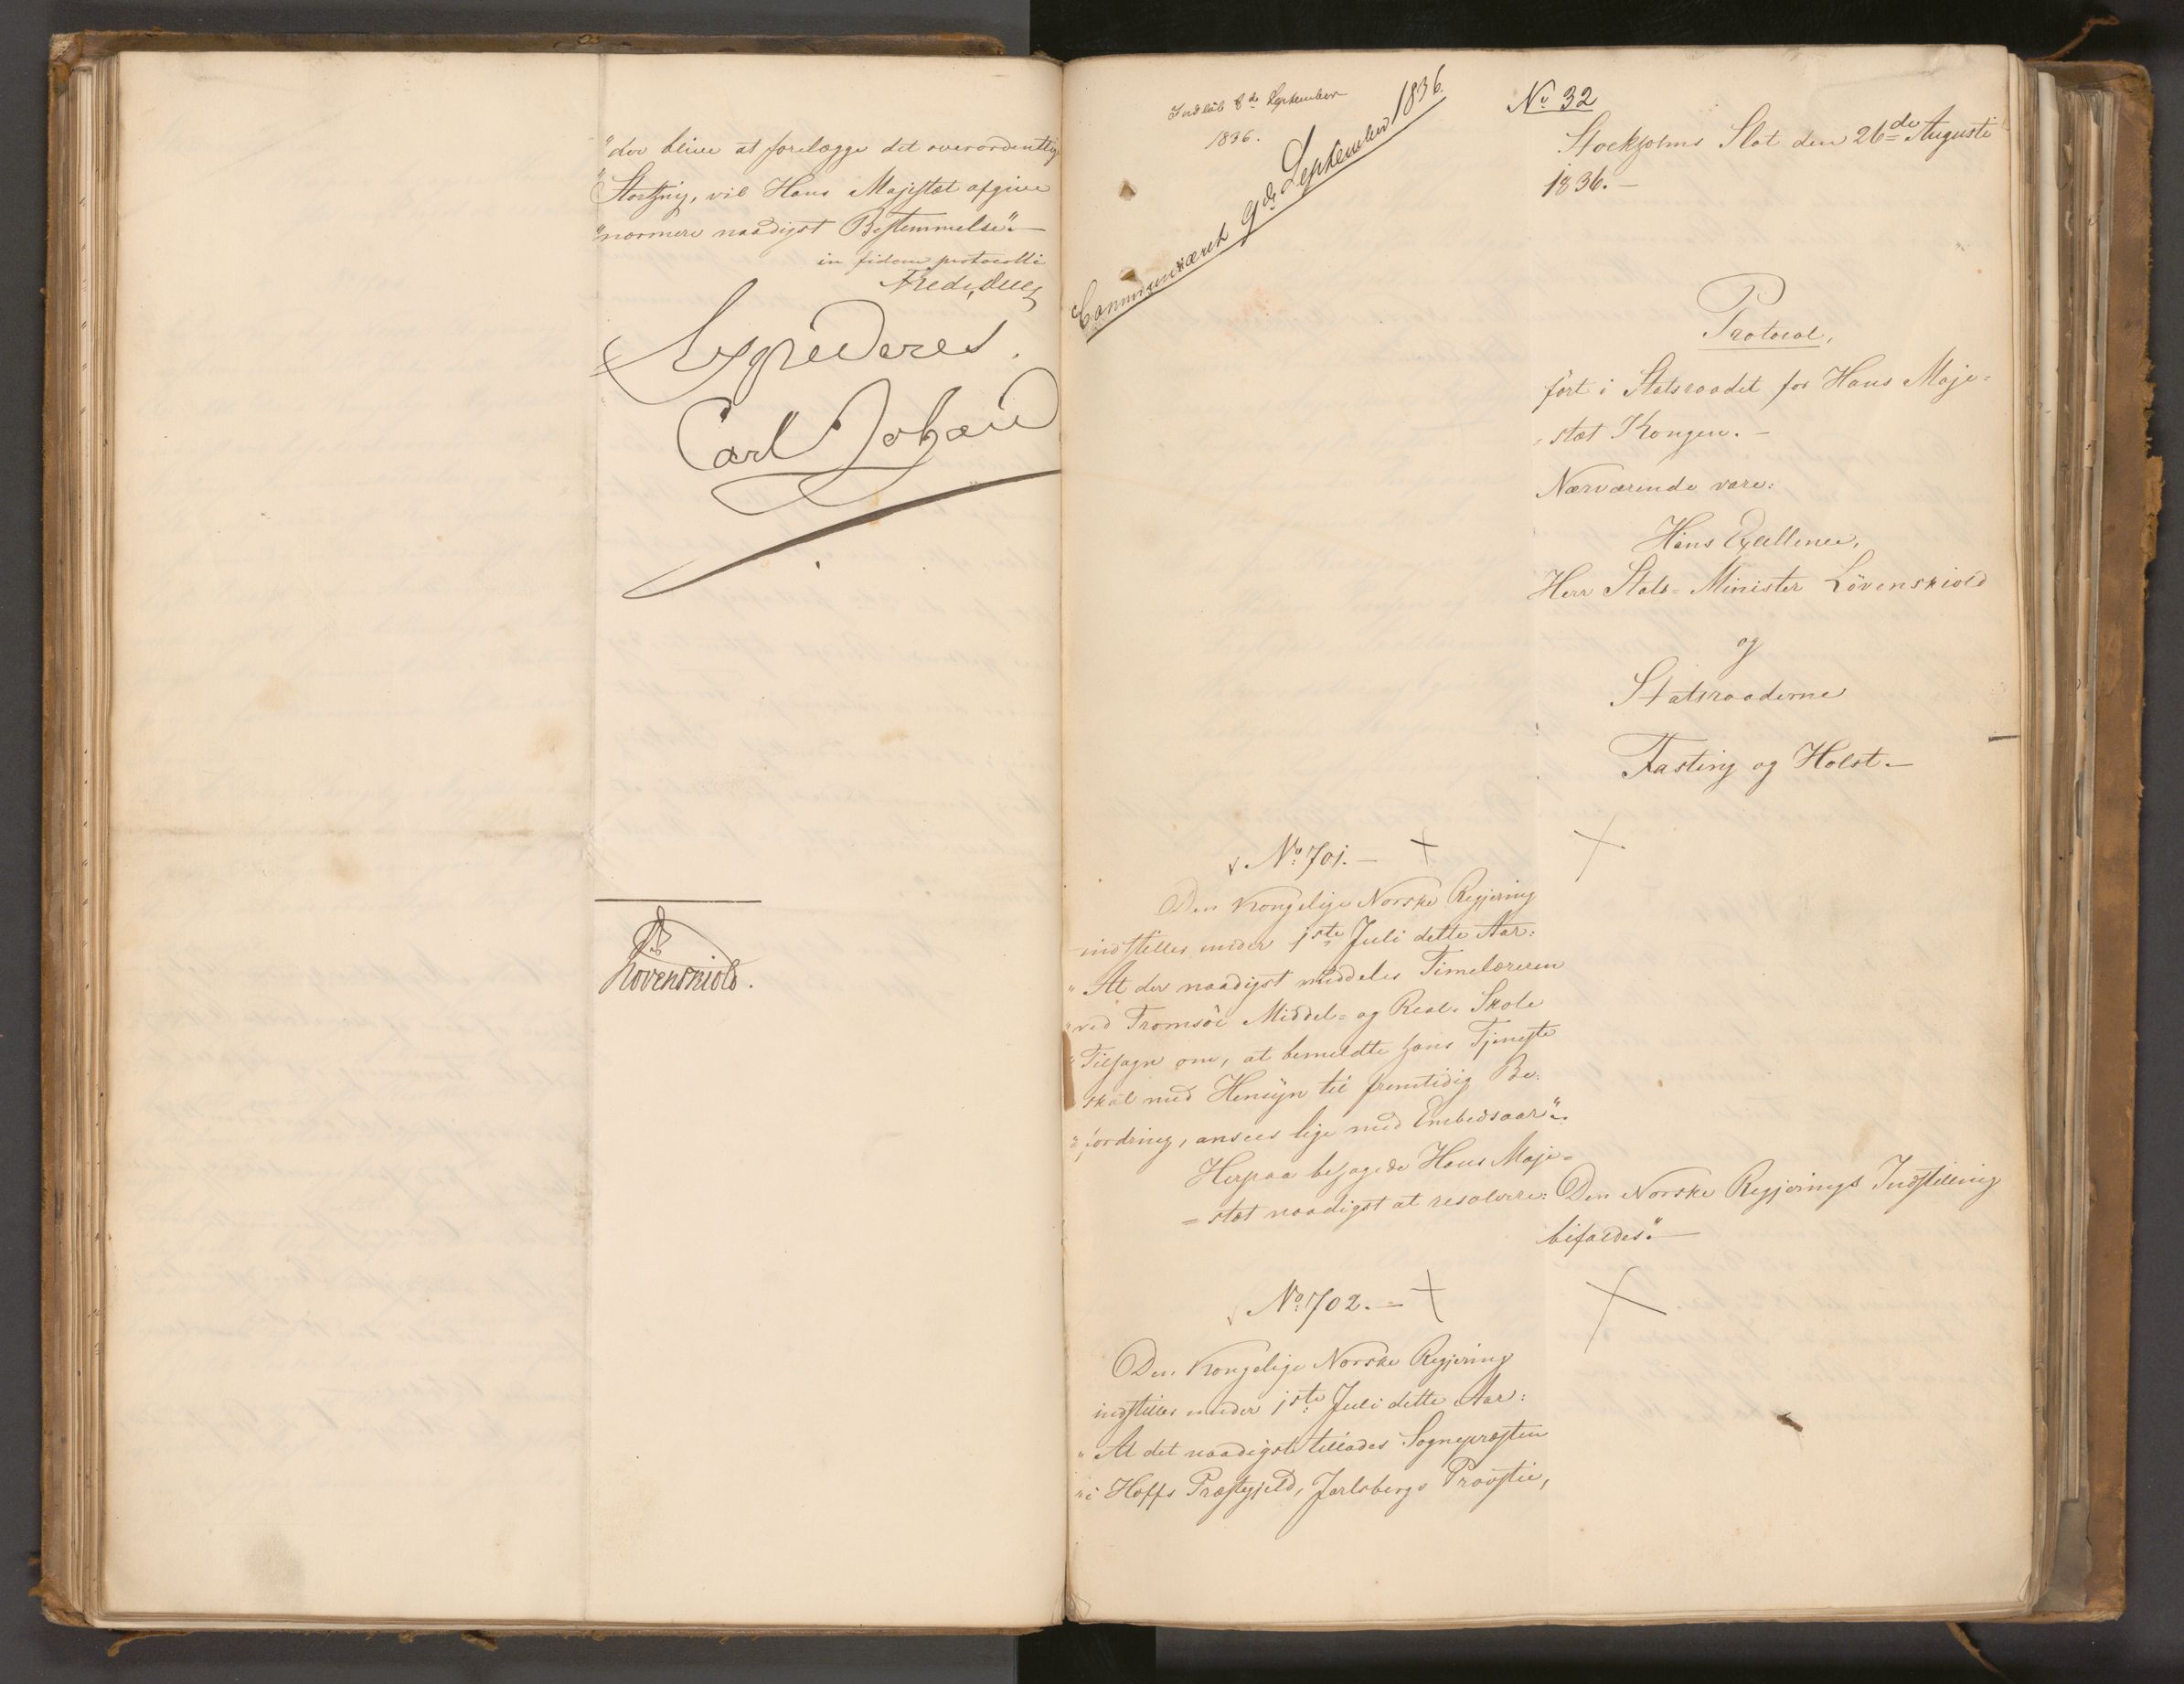 "der blive at forelægge det overordentlige
"Storthing, vil Hans Majestæt afgive
"nærmere naadigst Bestemmelse".—
in fidem protocolli
Fred. Due
Expederes.
Carl Johan
Løvenskiold.
Indløb 8de September
1836.
Communiceret 9de September 1836.
No 32
Stockholms Slot den 26de Augusti
1836.—
Protocol,
ført i Statsraadet for Hans Maje=
=stæt Kongen.—
Nærværende vare:
Hans Excellence,
Herr Stats=Minister Løvenskiold
og
Statsraaderne
Fasting og Holst.—
No 701.—
Den Kongelige Norske Regjering
indstiller under 1ste Juli dette Aar:
"At der naadigst meddeles Timelæreren
"ved Tromsöe Middel= og Real-Skole
"Tilsagn om, at bemeldte hans Tjeneste
skal med Hensyn til fremtidig Be=
"fordring, ansees lige med Embedsaar".
Herpaa behagede Hans Maje=
=stæt naadigst at resolvere: Den Norske Regjerings Indstilling
bifaldes".—
No 702.—
Den Kongelige Norske Regjering
indstiller under 1ste Juli dette Aar:
"At det naadigst tillades Sognepræsten
"i Hoffs Præstegjeld, Jarlsbergs Provstie,